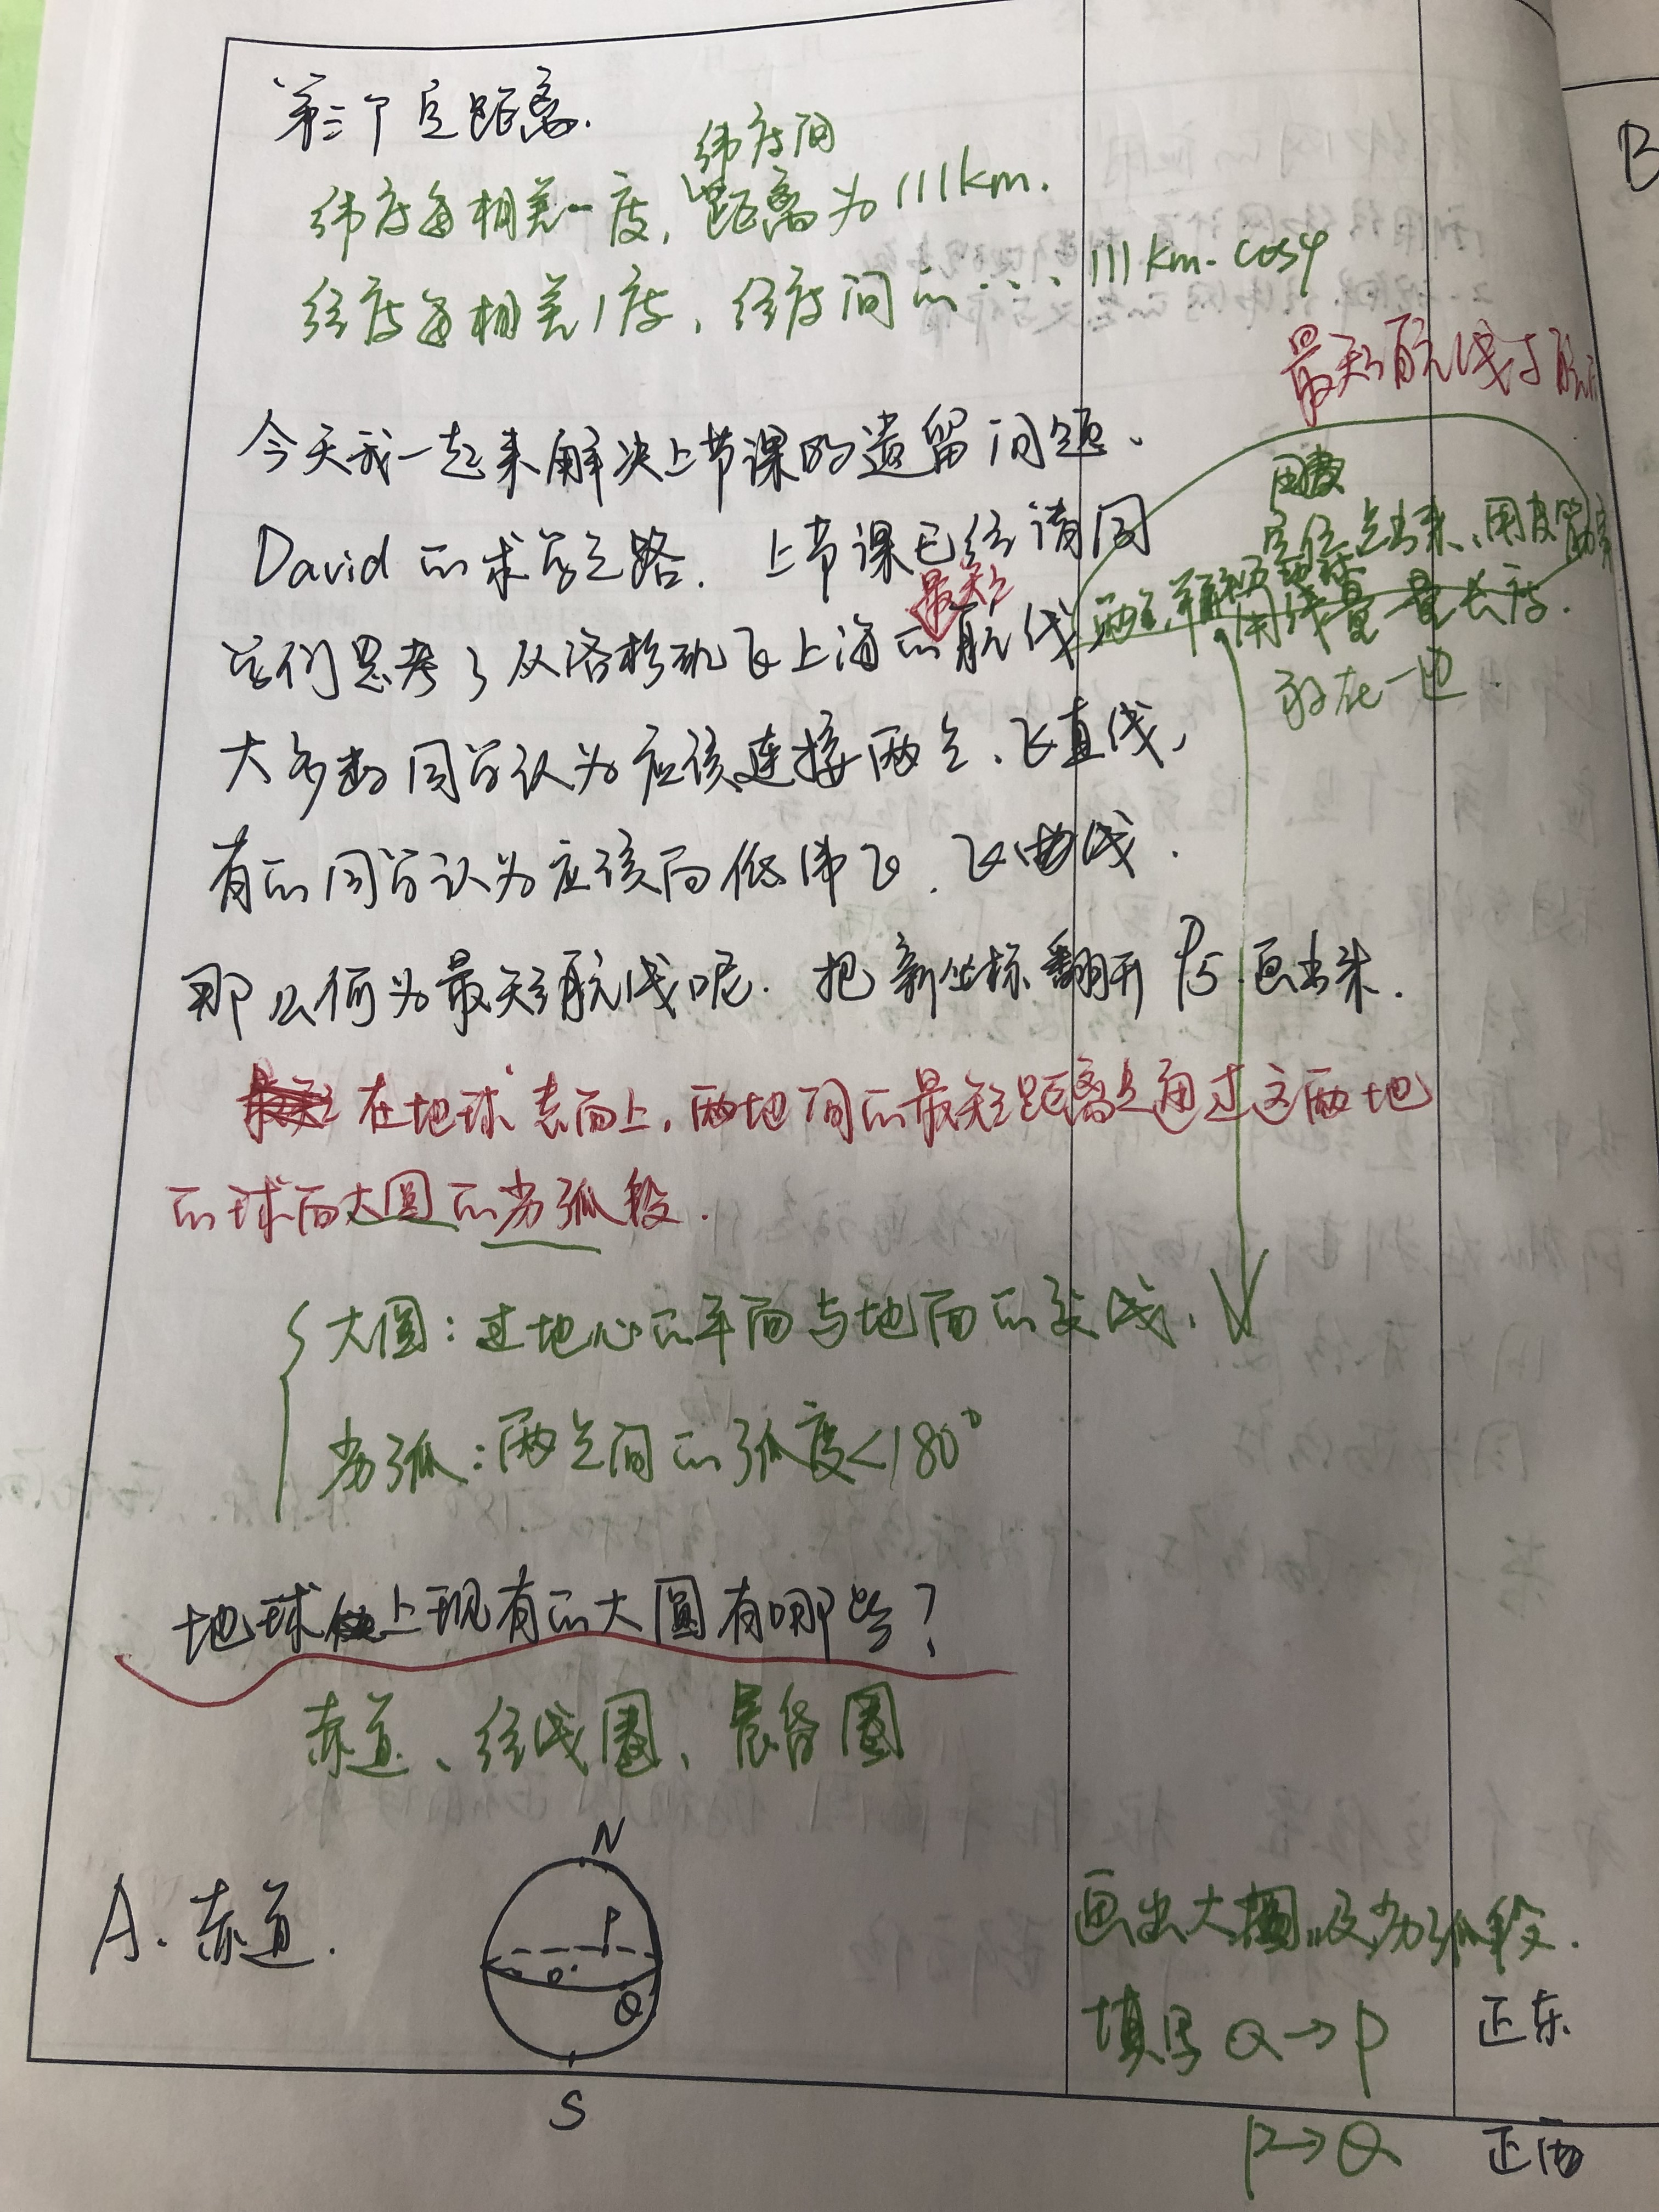 第三个是距离.
纬度间
纬度每相差一度, 距离为111km.
经度每相差1度, 经度间的... 111km·cosφ
最短航线与航
今天我一起来解决上节课的遗留问题、
David的求学之路. 上节课已经请同
最短
学们思考了从洛杉矶飞上海的航线
定位点出来、用皮筋
两点
用线量 量长度.
放在一边.
大多数同学认为应该连接两点、飞直线,
有的同学认为应该向低纬飞. 飞曲线.
那么何为最短航线呢. 把新坐标翻开P5 画出来.
在地球表面上, 两地间的最短距离是通过这两地
的球面大圆的劣弧段.
大圆: 过地心的平面与地面的交线.
劣弧: 两点间的弧度<180°
地球上现有的大圆有哪些?
赤道、经线圈、晨昏圈
A. 赤道.
N
P
O
Q
S
画出大圆及劣弧段.
填写 Q→P 正东
P→Q 正西
B